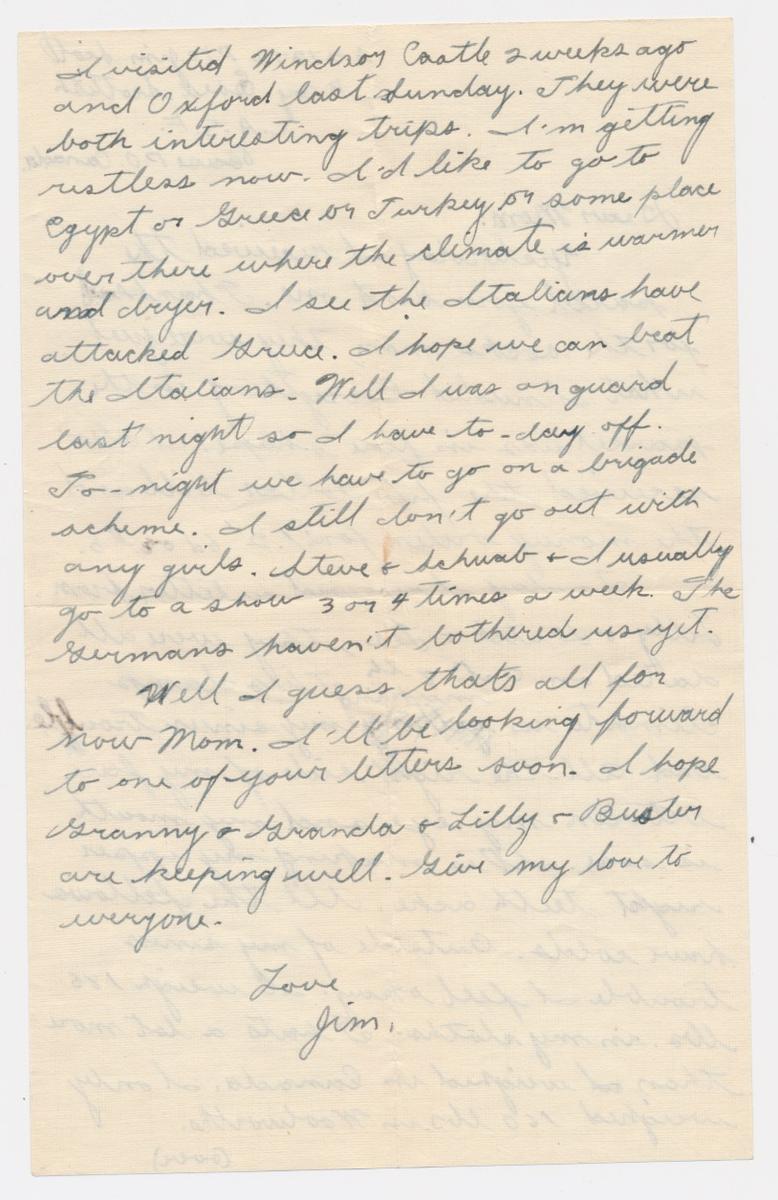 I visited Windsor Castle 2 weeks ago
and Oxford last Sunday. They were
both interesting trips. I'm getting
restless now. I'd like to go to
Egypt or Greece or Turkey or some place
over there where the climate is warmer
and dryer. I see the Italians have
attacked Greece. I hope we can beat
the Italians. Well I was on guard
last night so I have to-day off.
To-night we have to go on a brigade
scheme. I still don't go out with
any girls. Steve & Schwab & I usually
go to a show 3 or 4 times a week. The
Germans haven't bothered us yet.
Well I guess thats all for
now Mom. I'll be looking forward
to one of your letters soon. I hope
Granny & Granda & Lilly & Buster
are keeping well. Give my love to
everyone.
Love
Jim.